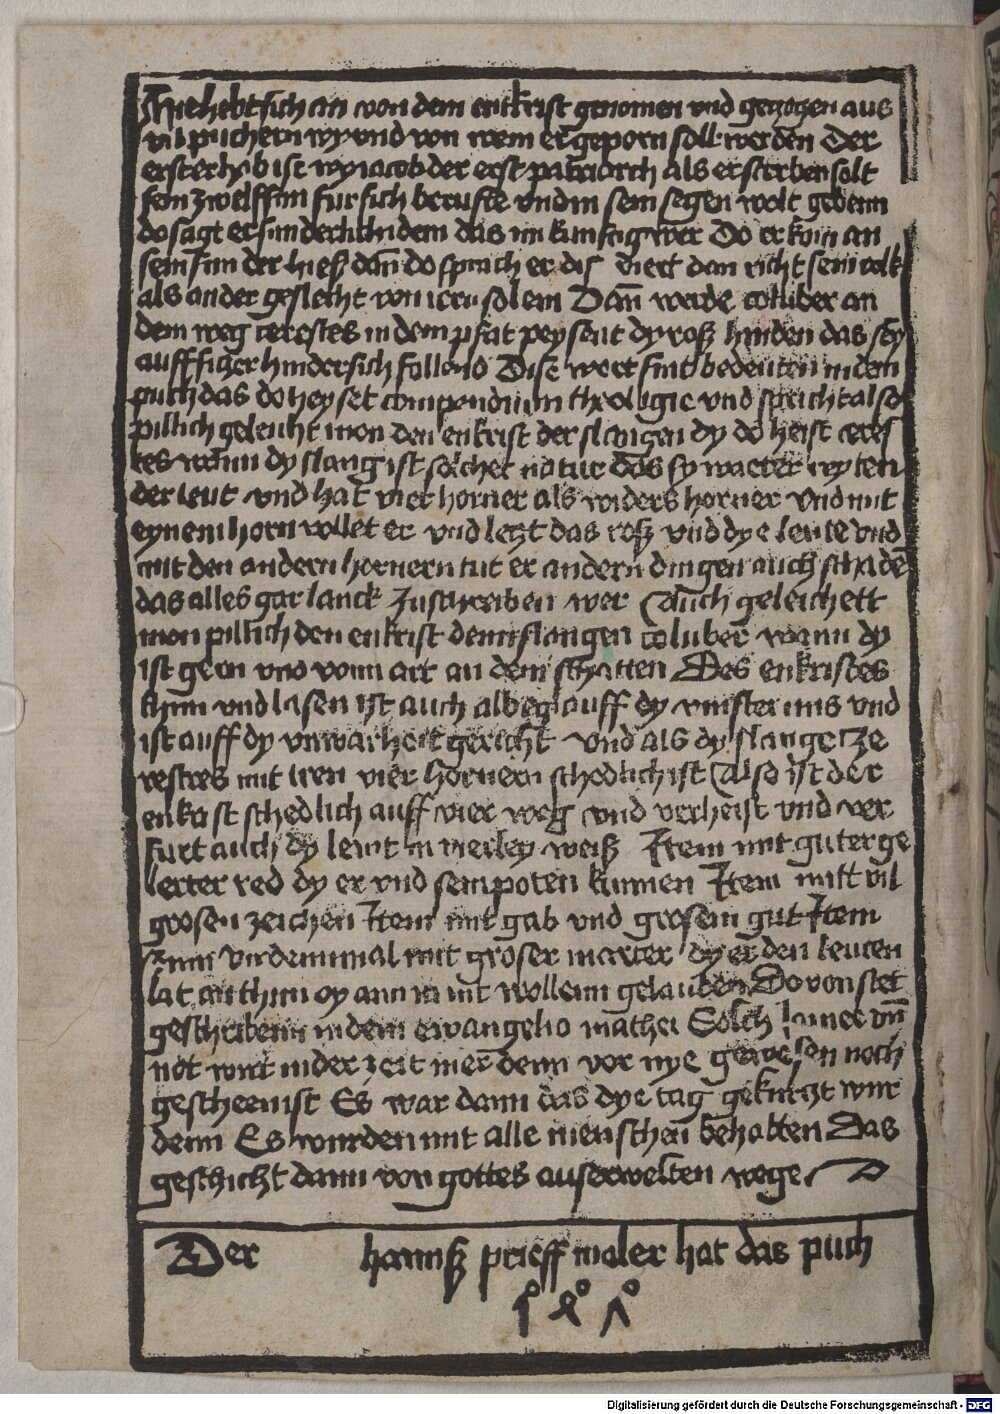 Hie hebt sich an von dem entkrist genomen vnd geczogen aus
vil puchern wy vnd von wem er geporn soll werden Der
erster hab ist wy iacob der erst patriarch als er sterben solt
sein zwelff sun fur sich beruffte vnd in sein segen wolt gebenn
do sagt er sunderlich in dem das im kunftig wer Do er kom an
sein sun der hiesz dan do sprach er dis wert dan richt sein volk
als ander geslecht von ierusolem Dan werde coluber an
dem weg cerostes in dem pfat peysent dy rosz hinden das sey
auffsiger hindersich fallend Dise wort sint bedeuten in dem
puch das do heyset compendium theologie vnd spricht also
pillich geleicht mon den enkrist der slangen dy do heist ceres
tes wann dy slang ist solcher natur das sy warter wyten
der leut vnd hat vier horner als widers horner vnd mit
eynem horn vollet er vnd letzt das rosz vnd dye leute vnd
mit den andern hornern tut er andern dingen auch schaden
das alles gar lanck zuschreiben wer Auch geleichett
mon pillich den enkrist dem slangen coluber wann dy
ist geren vnd vonn art an dem schatten Des enkristes
thun vnd lasen ist auch albeg auff dy vinsternus vnd
ist auff dy vnwarheit gericht vnd als dy slange ze
restes mit iren vier hornern schedlich ist Also ist der
enkrist schedlich auff vier weg vnd verheist vnd ver
furt auch dy lewt in vierley weisz Item mit guter ge
lerter red dy er vnd sein poten kunnen Item mitt vil
grosen zeichen Item mit gab vnd grosem gut Item
zum virdenmal mit groser marter dy er den leuten
lat an thun dy ann in nit wollenn gelauben Do von stet
geschribenn in dem ewangelio mathei Solch iamer vnd
not wirt in der zeit mer denn vor nye gewesen noch
gescheen ist Es war dann das dye tag gekurtzt wur
denn Es wurden nit alle menschen behalten Das
geschicht dann von gottes auserwelten wege
Der hannsz prieff maler hat das puch
1 4 7
Digitalisierung gefördert durch die Deutsche Forschungsgemeinschaft - DFG